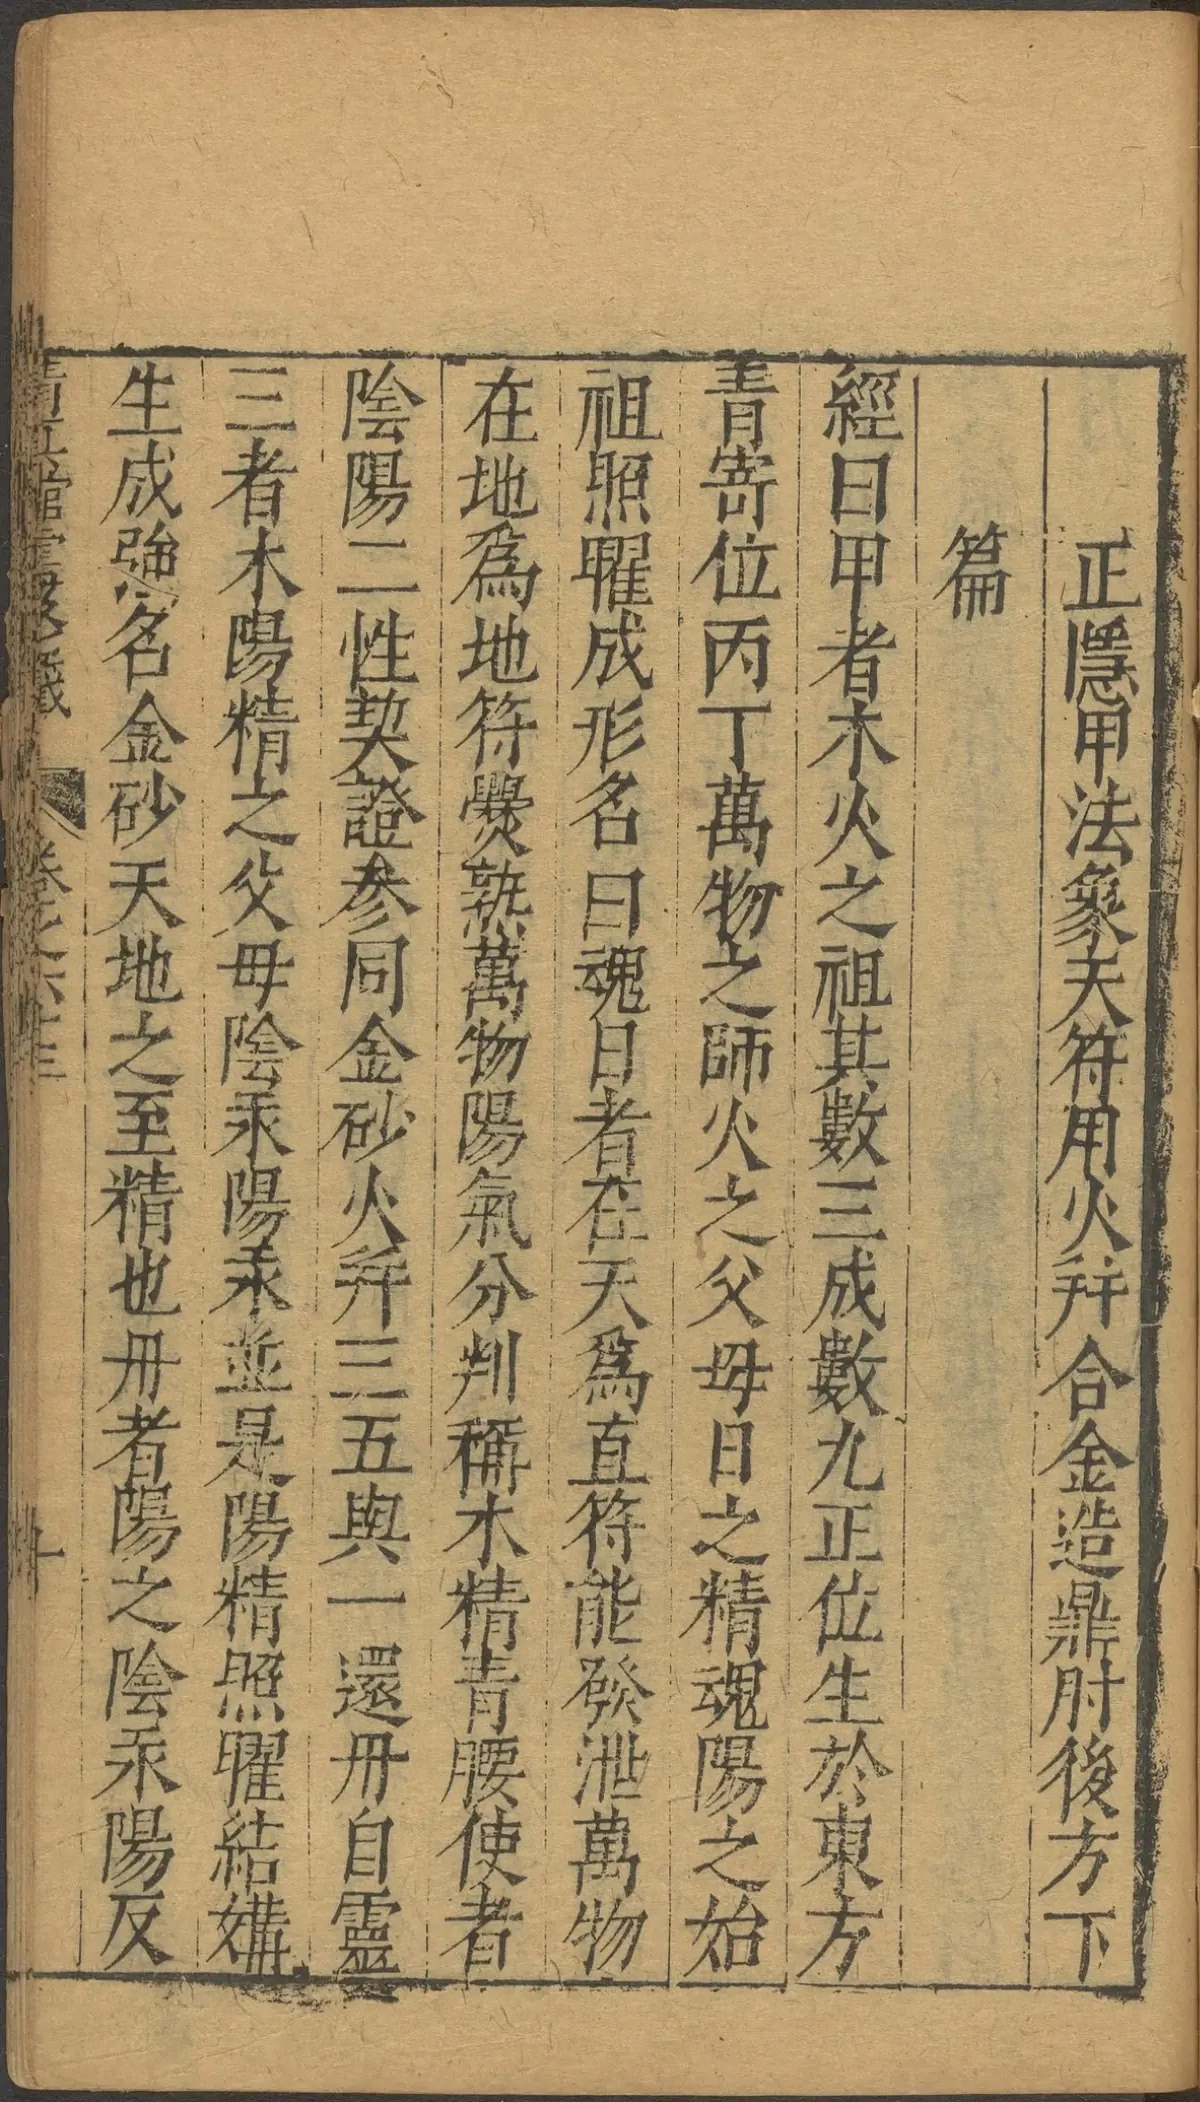 正隱甲法象天符用火并合金造鼎肘後方下
篇
經曰甲者木火之祖其數三成數九正位生於東方
青寄位丙丁萬物之師火之父母日之精魂陽之始
祖照曜成形名曰魂日者在天為直符能發泄萬物
在地為地符爂熟萬物陽氣分判稱木精青腰使者
陰陽二性契證参同金砂火并三五與一還丹自靈
三者木陽精之父母陰汞陽汞並是陽精照曜結媾
生成強名金砂天地之至精也丹者陽之陰汞陽反
卷之六
十